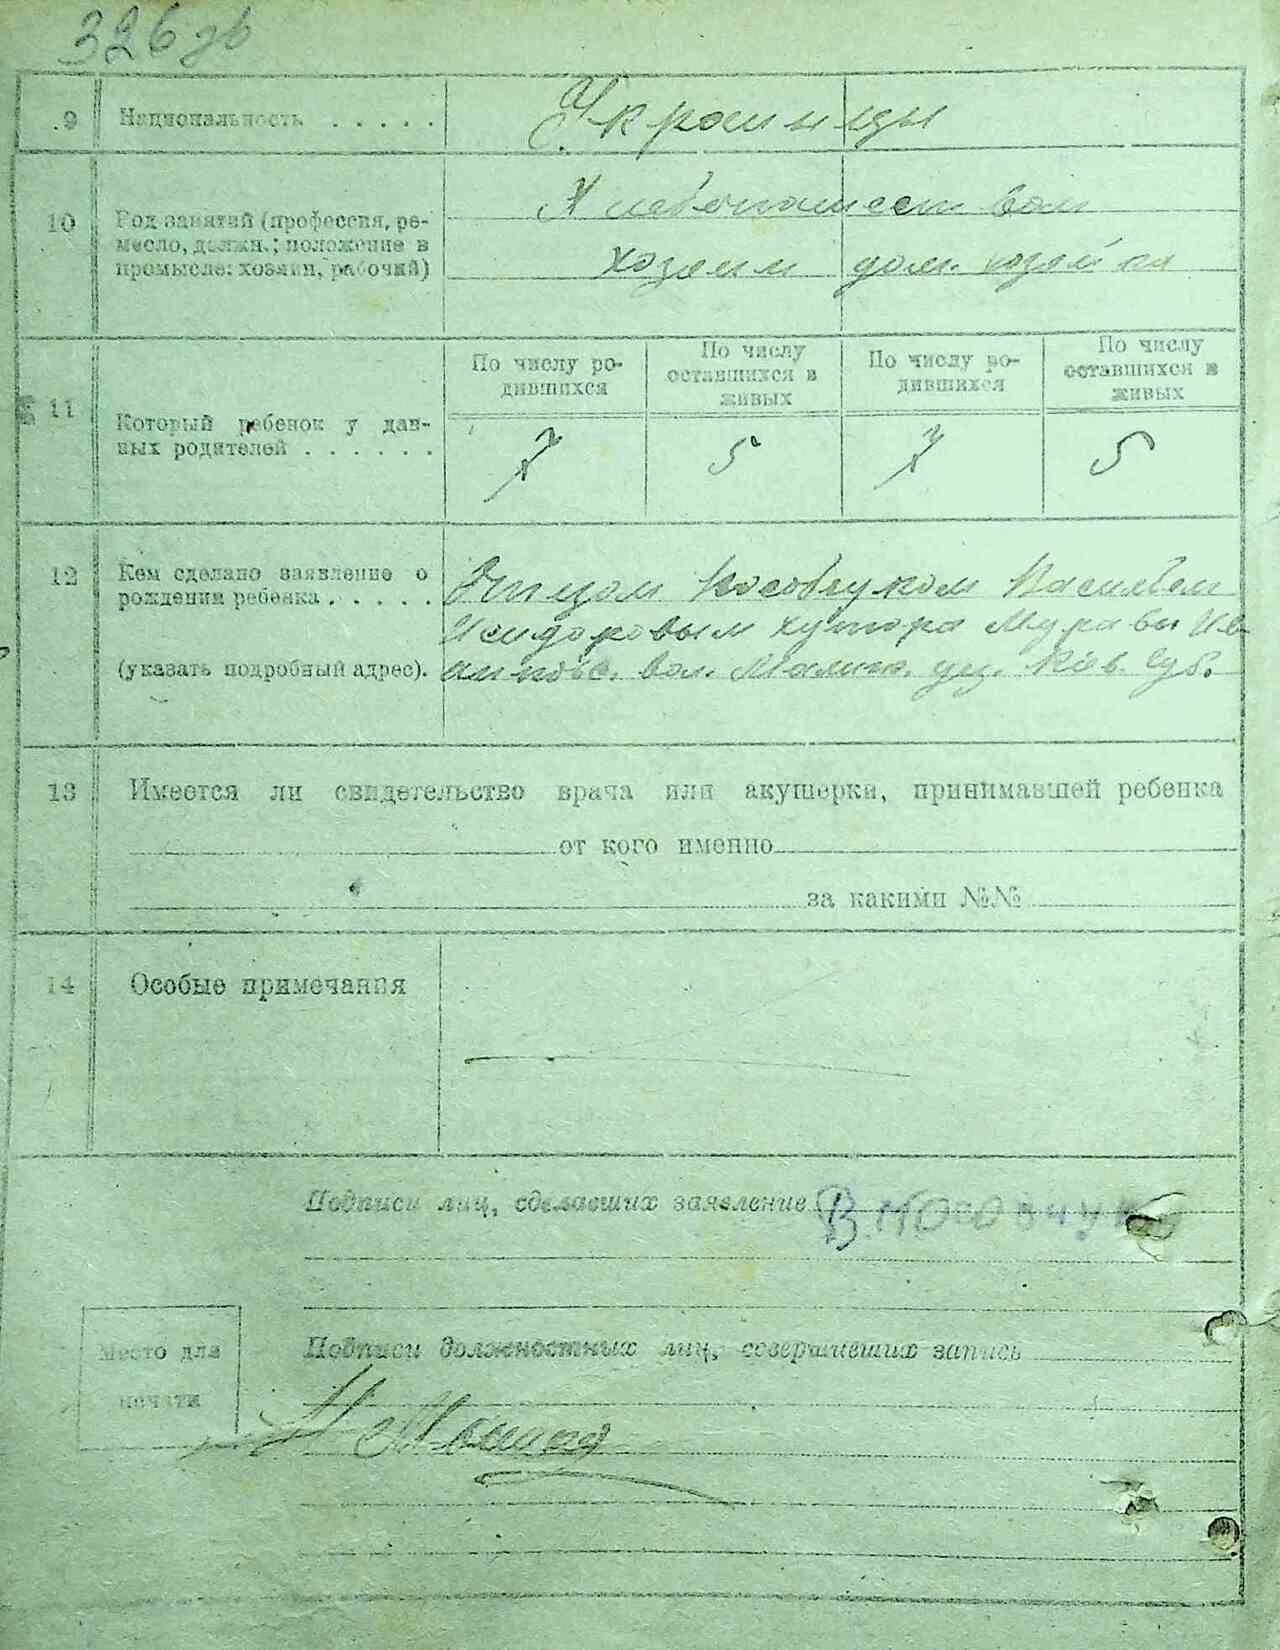 326 зв
9 Национальность . . . . . Украинцы
10 Род занятий (профессия, ре-
месло, должн.; положение в
промысле: хозяин, рабочий)
Хлебопашеством
хозяин дом. хозяйка
11 Который ребенок у дан-
ных родителей . . . . . .
По числу ро-
дившихся
По числу
оставшихся в
живых
По числу ро-
дившихся
По числу
оставшихся в
живых
7 5 7 5
12 Кем сделано заявление о
рождении ребенка . . . . .
(указать подробный адрес).
Отцом Василием
Исидоровым хутора Муравы Ив-
анковс. вол. Малин. уез. Киев. Губ.
13 Имеется ли свидетельство врача или акушерки, принимавшей ребенка
от кого именно
за какими №№
14 Особые примечания
Подписи лиц, сделавших заявление В.
Место для
печати
Подписи должностных лиц, совершивших запись